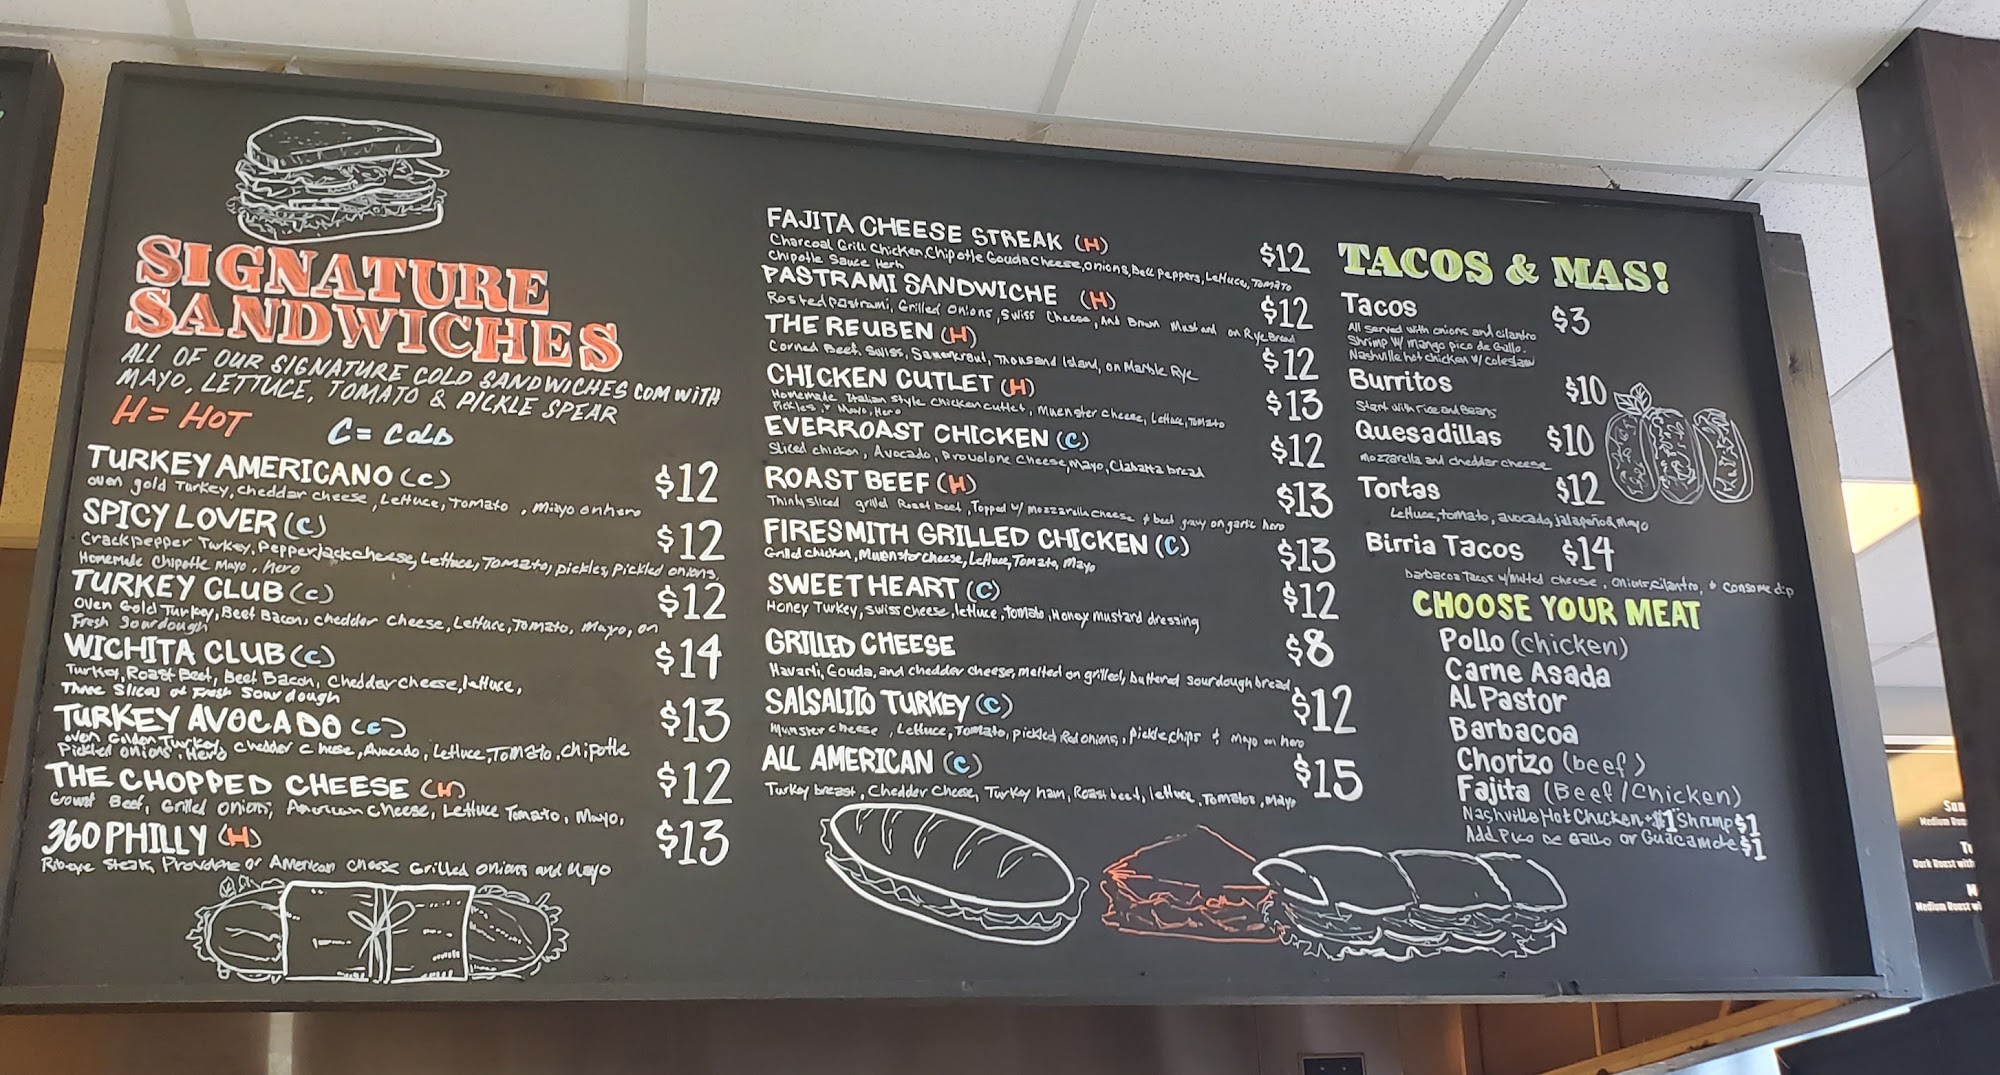 SIGNATURE
SANDWICHES
ALL OF OUR SIGNATURE COLD SANDWICHES COM WITH
MAYO, LETTUCE, TOMATO & PICKLE SPEAR
H = HOT C = COLD
TURKEY AMERICANO (C) $12
oven gold Turkey, cheddar cheese, Lettuce, Tomato, Mayo on hero
SPICY LOVER (C) $12
Crackpepper Turkey, Pepperjack cheese, Lettuce, Tomato, pickles, Pickled onions,
Homemade Chipotle Mayo, Hero
TURKEY CLUB (C) $12
Oven Gold Turkey, Beef Bacon, cheddar cheese, Lettuce, Tomato, Mayo, on
Fresh Sourdough
WICHITA CLUB (C) $14
Turkey, Roast Beef, Beef Bacon, Cheddar cheese, lettuce,
Three Slices of Fresh Sour dough
TURKEY AVOCADO (C) $13
oven Golden Turkey, Chedder Cheese, Avocado, Lettuce, Tomato, Chipotle
Pickled onions, Hero
THE CHOPPED CHEESE (H) $12
Ground Beef, Grilled onions, American Cheese, Lettuce Tomato, Mayo,
360 PHILLY (H) $13
Rib-eye Steak, Provolone or American Cheese Grilled onions and Mayo
FAJITA CHEESE STREAK (H) $12
Charcoal Grill Chicken, Chipotle Gouda Cheese, onions, Bell Peppers, Lettuce, Tomato
Chipotle Sauce Hero
PASTRAMI SANDWICHE (H) $12
Rosted pastrami, Grilled Onions, Swiss Cheese, And Brown Mustard on Rye Bread
THE REUBEN (H) $12
Corned Beef, Swiss, Sauerkraut, Thousand Island, on Marble Rye
CHICKEN CUTLET (H) $13
Homemade Italian Style Chicken cutlet, Muenster cheese, Lettuce, Tomato
Pickles, & Mayo, Hero
EVERROAST CHICKEN (C) $12
Sliced chicken, Avocado, Provolone Cheese, Mayo, Ciabatta bread
ROAST BEEF (H) $13
Thinly sliced grilled Roast beef, Topped w/ Mozzarella cheese & beef gravy on garlic hero
FIRESMITH GRILLED CHICKEN (C) $13
Grilled chicken, Muenster cheese, Lettuce, Tomato, Mayo
SWEETHEART (C) $12
Honey Turkey, swiss cheese, lettuce, tomato, Honey mustard dressing
GRILLED CHEESE $8
Havarti, Gouda, and chedder cheese, melted on grilled, buttered sourdough bread
SALSALITO TURKEY (C) $12
Munster cheese, Lettuce, Tomato, pickled Red onions, pickle chips & mayo on hero
ALL AMERICAN (C) $15
Turkey breast, Chedder Cheese, Turkey ham, Roast beef, lettuce, Tomatos, Mayo
TACOS & MAS!
Tacos $3
All served with onions and cilantro
Shrimp W/ Mango pico de Gallo.
Nashville hot chicken w/ coleslaw
Burritos $10
Start with rice and Beans
Quesadillas $10
mozzarella and cheddar cheese
Tortas $12
Lettuce, tomato, avocado, jalapeño & Mayo
Birria Tacos $14
barbacoa Tacos w/ Melted cheese, onions, cilantro, + consome dip
CHOOSE YOUR MEAT
Pollo (chicken)
Carne Asada
Al Pastor
Barbacoa
Chorizo (beef)
Fajita (Beef/Chicken)
Nashville Hot Chicken +$1 Shrimp $1
Add Pico De Gallo or Guacamole $1